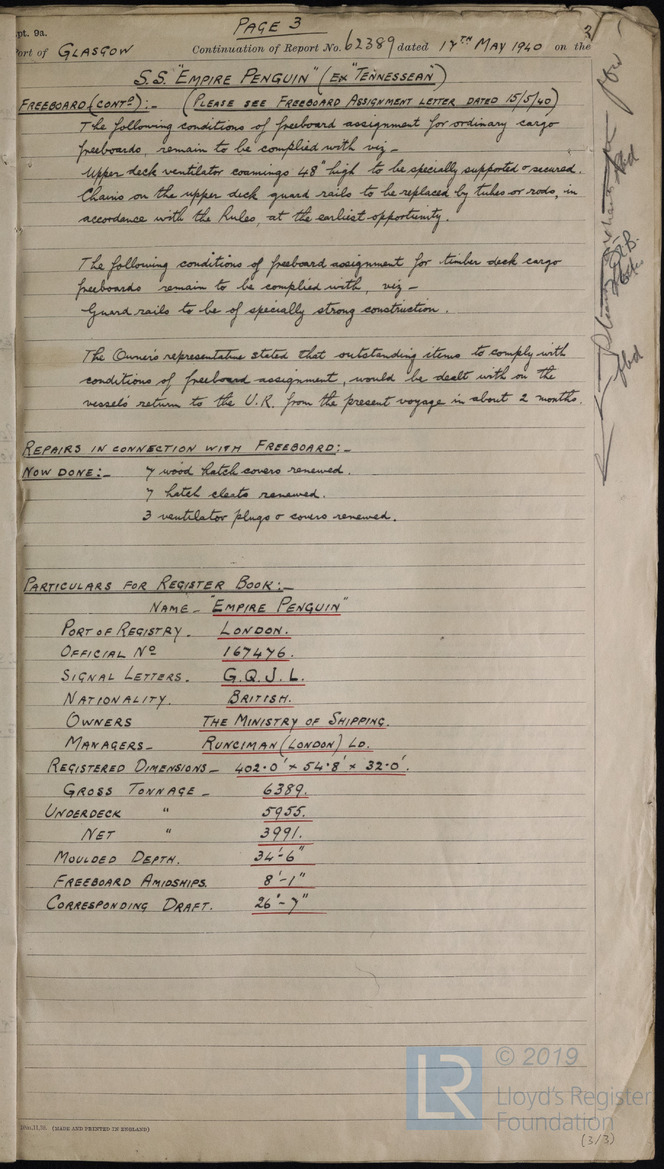 PAGE 3
pt. 9a.
3
Port of GLASGOW Continuation of Report No. 62389 dated 17TH MAY 1940 on the
S.S. "EMPIRE PENGUIN" (EX "TENNESSEAN")
FREEBOARD (CONTD):- (PLEASE SEE FREEBOARD ASSIGNMENT LETTER DATED 15/5/40)
The following conditions of freeboard assignment for ordinary cargo
freeboards, remain to be complied with viz -
Upper deck ventilator coamings 48" high to be specially supported & secured.
Chains on the upper deck guard rails to be replaced by tubes or rods, in
accordance with the Rules, at the earliest opportunity.
The following conditions of freeboard assignment for timber deck cargo
freeboards remain to be complied with, viz -
Guard rails to be of specially strong construction.
The Owners representative stated that outstanding items to comply with
conditions of freeboard assignment, would be dealt with on the
vessels return to the U.K. from the present voyage in about 2 months.
REPAIRS IN CONNECTION WITH FREEBOARD:-
NOW DONE:- 7 wood hatch covers renewed.
7 hatch cleats renewed.
3 ventilator plugs & covers renewed.
PARTICULARS FOR REGISTER BOOK:-
NAME - "EMPIRE PENGUIN"
PORT OF REGISTRY. LONDON.
OFFICIAL No 167476.
SIGNAL LETTERS. G.Q.J.L.
NATIONALITY. BRITISH.
OWNERS THE MINISTRY OF SHIPPING.
MANAGERS - RUNCIMAN (LONDON) LD.
REGISTERED DIMENSIONS - 402.0' x 54.8' x 32.0'.
GROSS TONNAGE - 6389.
UNDERDECK " 5955.
NET " 3991.
MOULDED DEPTH. 34'-6"
FREEBOARD AMIDSHIPS. 8'-1"
CORRESPONDING DRAFT. 26'-7"
LR
© 2019
Lloyd's Register
Foundation
(MADE AND PRINTED IN ENGLAND)
(3/3)